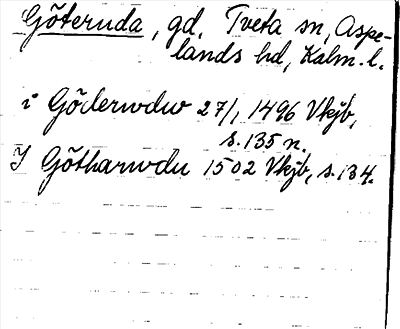 Göteruda, gd, Tveta sn, Aspe-
lands hd, Kalm. l.
i Göderwdw 27/1 1496 Vkjb,
s. 135 n.
J Götharwdu 1502 Vkjb, s. 134.